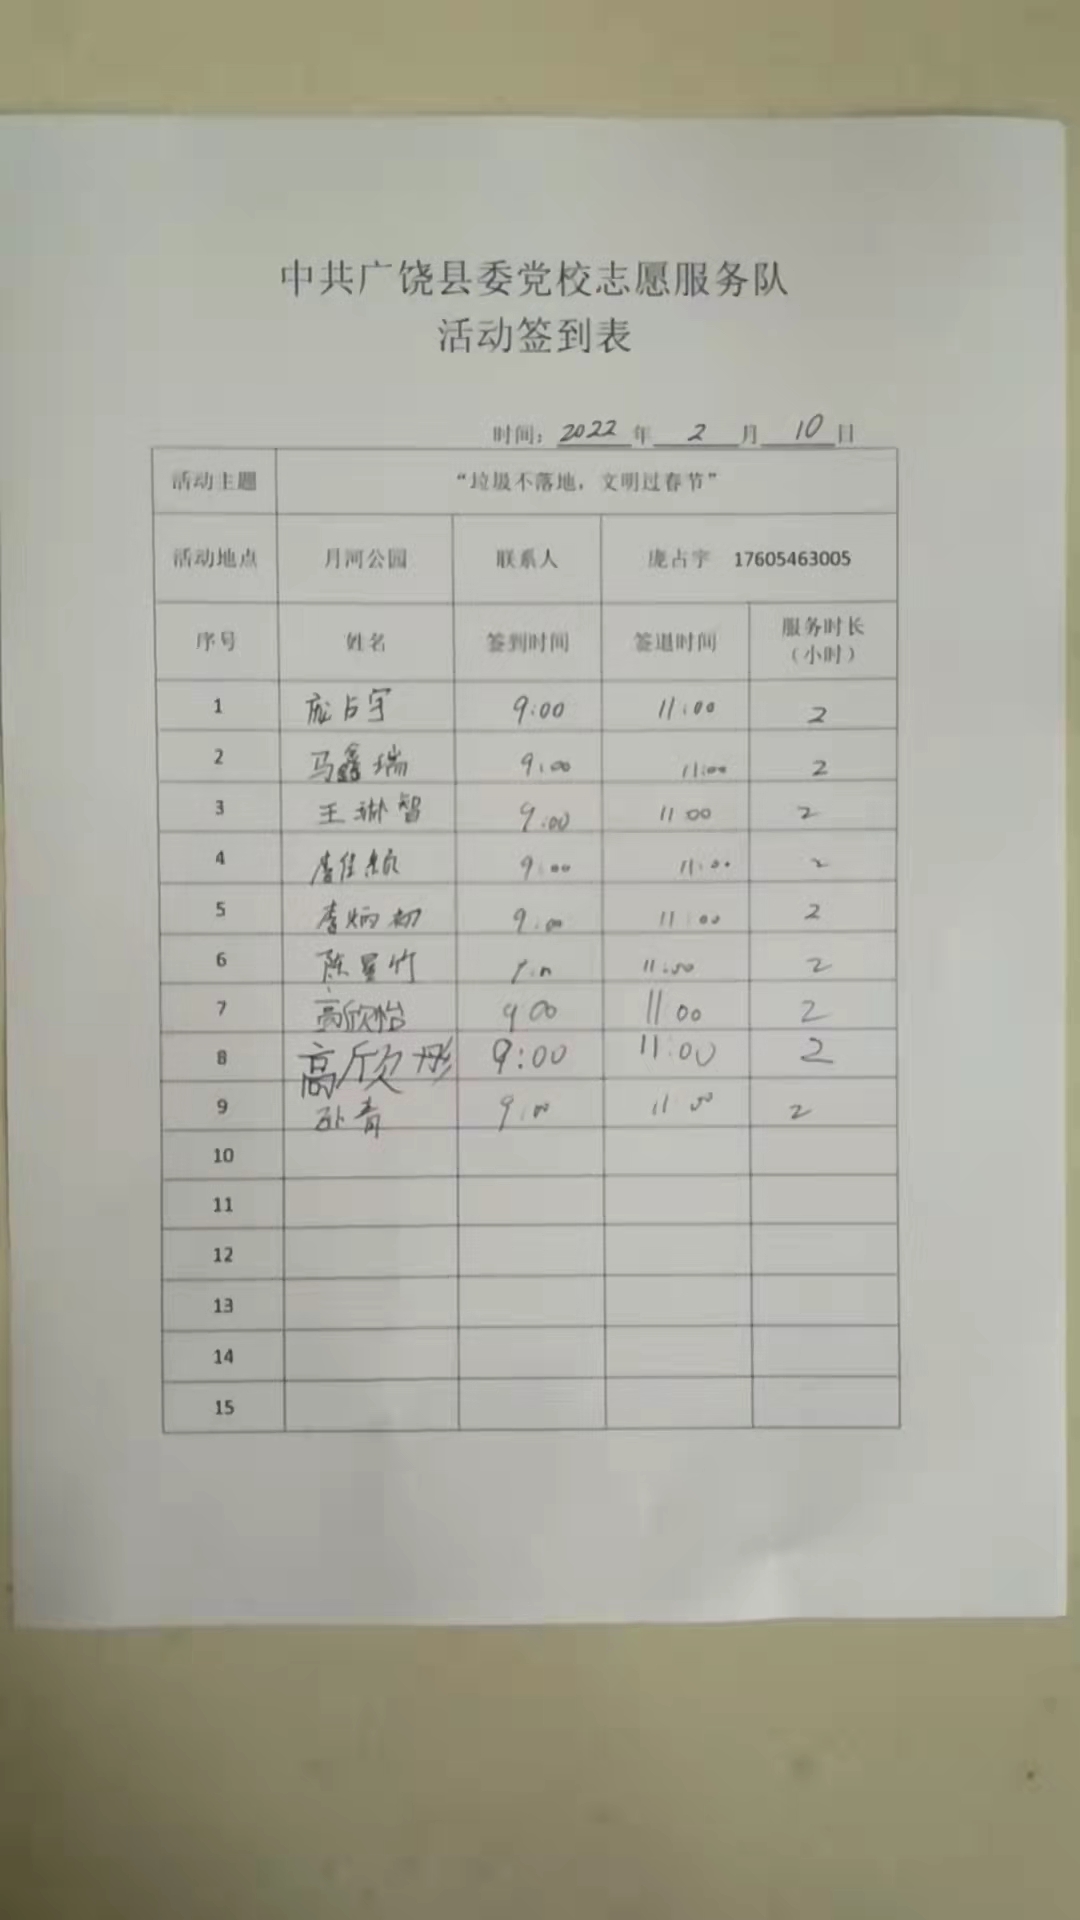 中共广饶县委党校志愿服务队
活动签到表
时间：2022年2月10日
活动主题 “垃圾不落地，文明过春节”
活动地点 月河公园 联系人 庞占宇 17605463005
序号 姓名 签到时间 签退时间 服务时长
（小时）
1 庞占宇 9:00 11:00 2
2 马鑫瑞 9:00 11:00 2
3 王琳智 9:00 11 00 2
4 李佳 9:00 11:00 2
5 李炳初 9:00 11:00 2
6 陈星竹 11:00 2
7 高欣怡 9 00 11 00 2
8 高欣彤 9:00 11:00 2
9 青 9:00 11 00 2
10
11
12
13
14
15